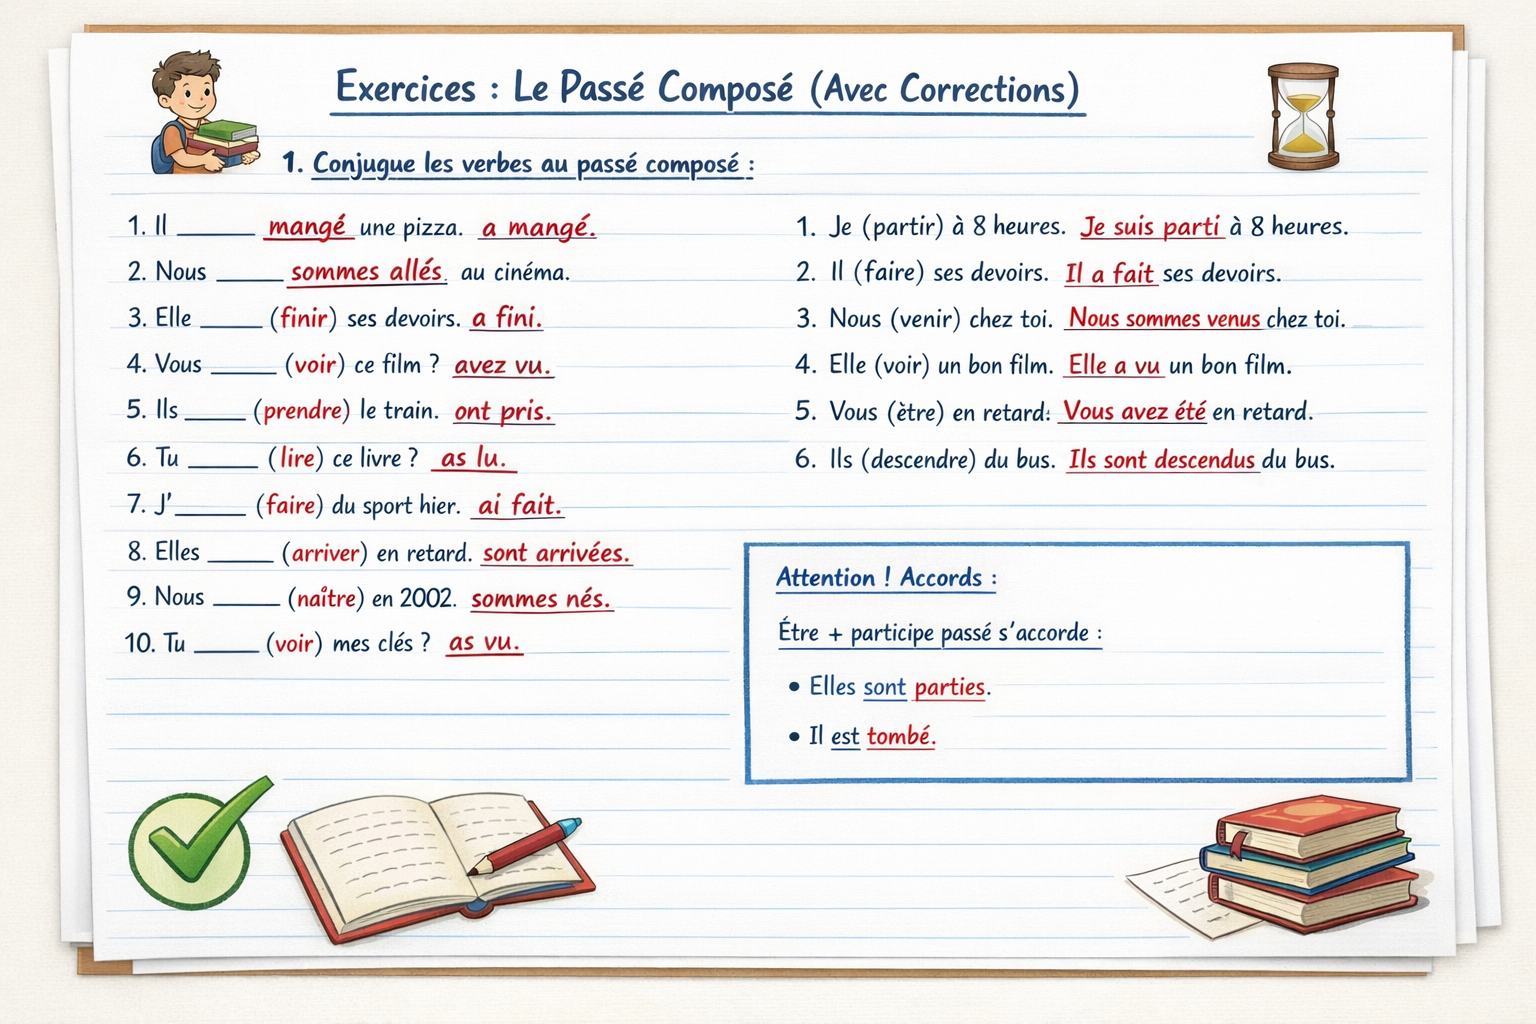 Exercices : Le Passé Composé (Avec Corrections)
1. Conjugue les verbes au passé composé :
1. Il ______ mangé une pizza. a mangé.
2. Nous ______ sommes allés. au cinéma.
3. Elle ______ (finir) ses devoirs. a fini.
4. Vous ______ (voir) ce film ? avez vu.
5. Ils ______ (prendre) le train. ont pris.
6. Tu ______ (lire) ce livre ? as lu.
7. J’______ (faire) du sport hier. ai fait.
8. Elles ______ (arriver) en retard. sont arrivées.
9. Nous ______ (naître) en 2002. sommes nés.
10. Tu ______ (voir) mes clés ? as vu.
1. Je (partir) à 8 heures. Je suis parti à 8 heures.
2. Il (faire) ses devoirs. Il a fait ses devoirs.
3. Nous (venir) chez toi. Nous sommes venus chez toi.
4. Elle (voir) un bon film. Elle a vu un bon film.
5. Vous (ètre) en retard: Vous avez été en retard.
6. Ils (descendre) du bus. Ils sont descendus du bus.
Attention ! Accords :
Étre + participe passé s’accorde :
• Elles sont parties.
• Il est tombé.